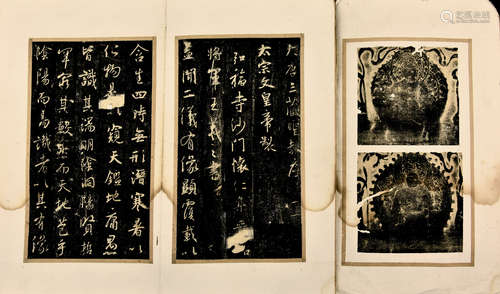 大唐三藏聖教序
太宗文皇帝製
弘福寺沙門懷仁集
將軍王羲之書
蓋聞二儀有像顯覆載以
含生四時無形潛寒暑以
化物是以窺天鑑地庸愚
皆識其端明陰洞陽賢哲
罕窮其數然而天地苞乎
陰陽而易識者以其有像